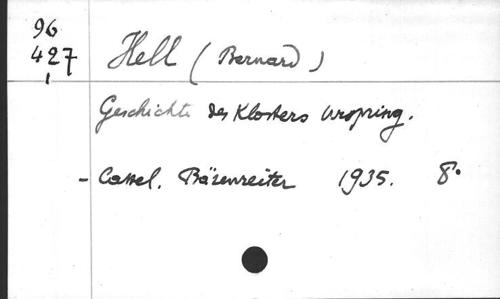 96
427
Hell (Bernard)
Geschichte des Klosters Urspring.
- Cassel. Bärenreiter 1935. 8°